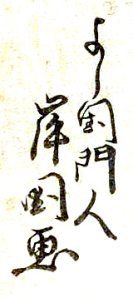 よし國門人
岸国画